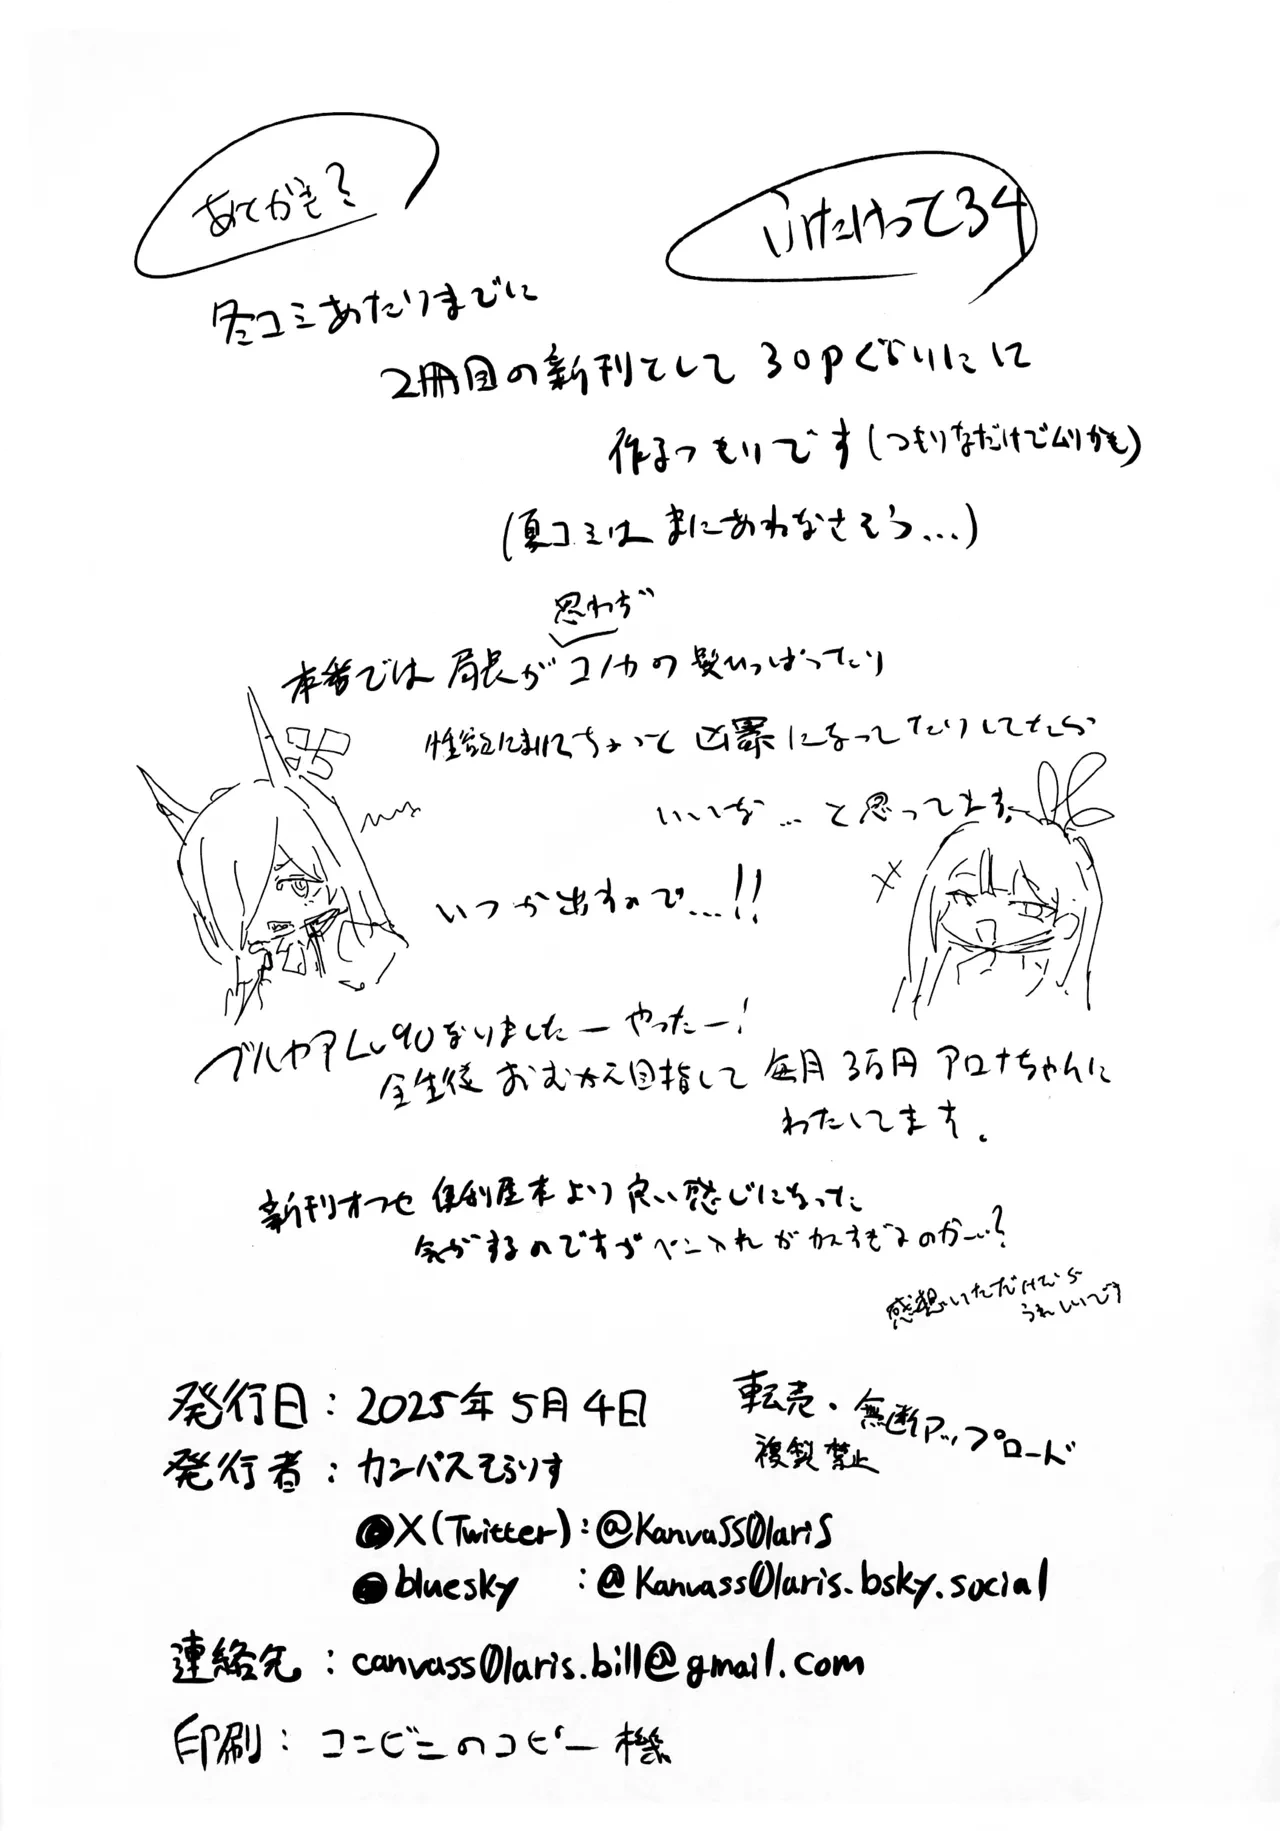 あとがき?
いけたけって34
冬コミあたりまでに
2冊目の新刊として30pぐらいに
作るつもりです(つもりなだけでムリかも)
(夏コミはまにあわなさそう...)
思わず
本番では局長がコノカの髪ひっぱったり
性欲にまけてちょっと凶暴になってたりしてたら
いいな...と思ってます
いつか出すので...!!
ブルカアLv90なりましたーやったー!
全生徒おむかえ目指して毎月3万円アロナちゃんに
わたしてます。
新刊オフセ便利屋本より良い感じになった
気がするのですがペン入れがカスすぎるのかー?
感想いただけたら
うれしいです
発行日:2025年5月4日
発行者:カンバスそらりす
転売・無断アップロード
複製禁止
●X(Twitter):@KanvaSS0lariS
●bluesky :@Kanvass0laris.bsky.social
連絡先:canvass0laris.bill@gmail.com
印刷:コンビニのコピー機